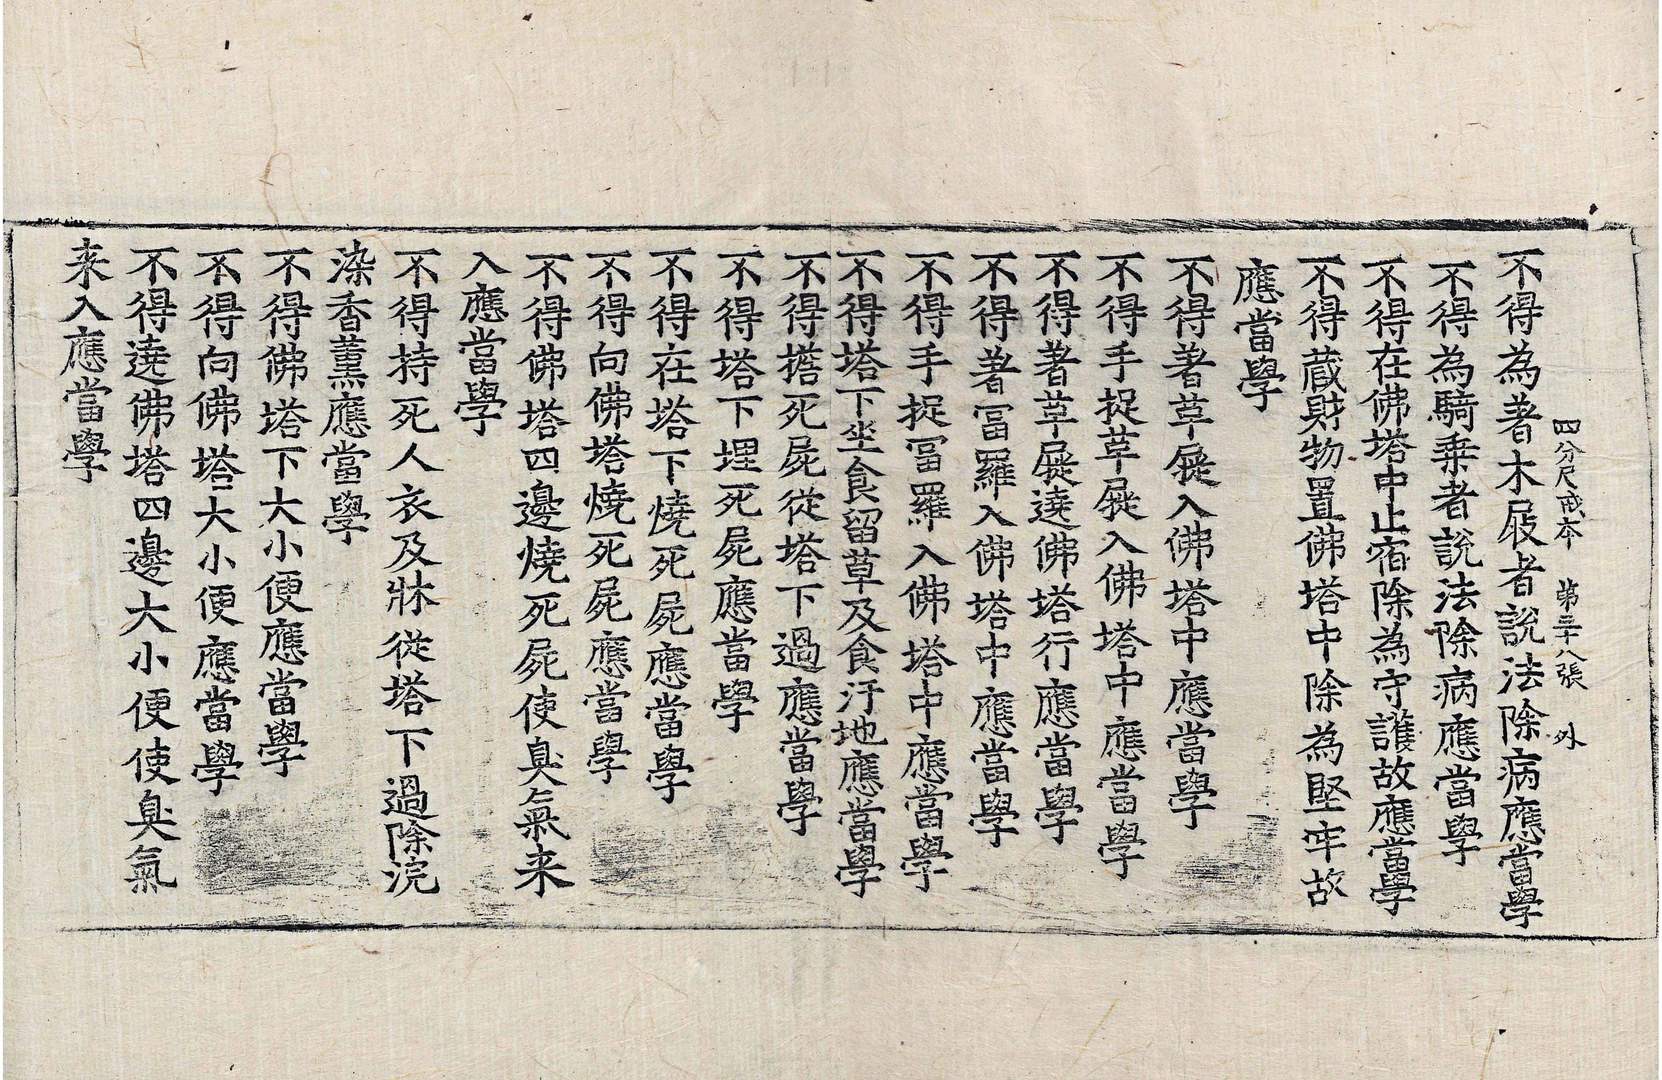 四分尼戒本 第三十八張 外
不得為著木屐者說法除病應當學
不得為騎乗者說法除病應當學
不得在佛塔中止宿除為守護故應當學
不得蔵財物置佛塔中除為堅牢故
應當學
不得著草屣入佛塔中應當學
不得手捉草屣入佛塔中應當學
不得著草屣遶佛塔行應當學
不得著冨羅入佛塔中應當學
不得手捉冨羅入佛塔中應當學
不得塔下坐食留草及食汙地應當學
不得擔死屍從塔下過應當學
不得塔下埋死屍應當學
不得在塔下燒死屍應當學
不得向佛塔燒死屍應當學
不得佛塔四邊燒死屍使臭氣来
入應當學
不得持死人衣及牀從塔下過除浣
染香薰應當學
不得佛塔下大小便應當學
不得向佛塔大小便應當學
不得遶佛塔四邊大小便使臭氣
来入應當學